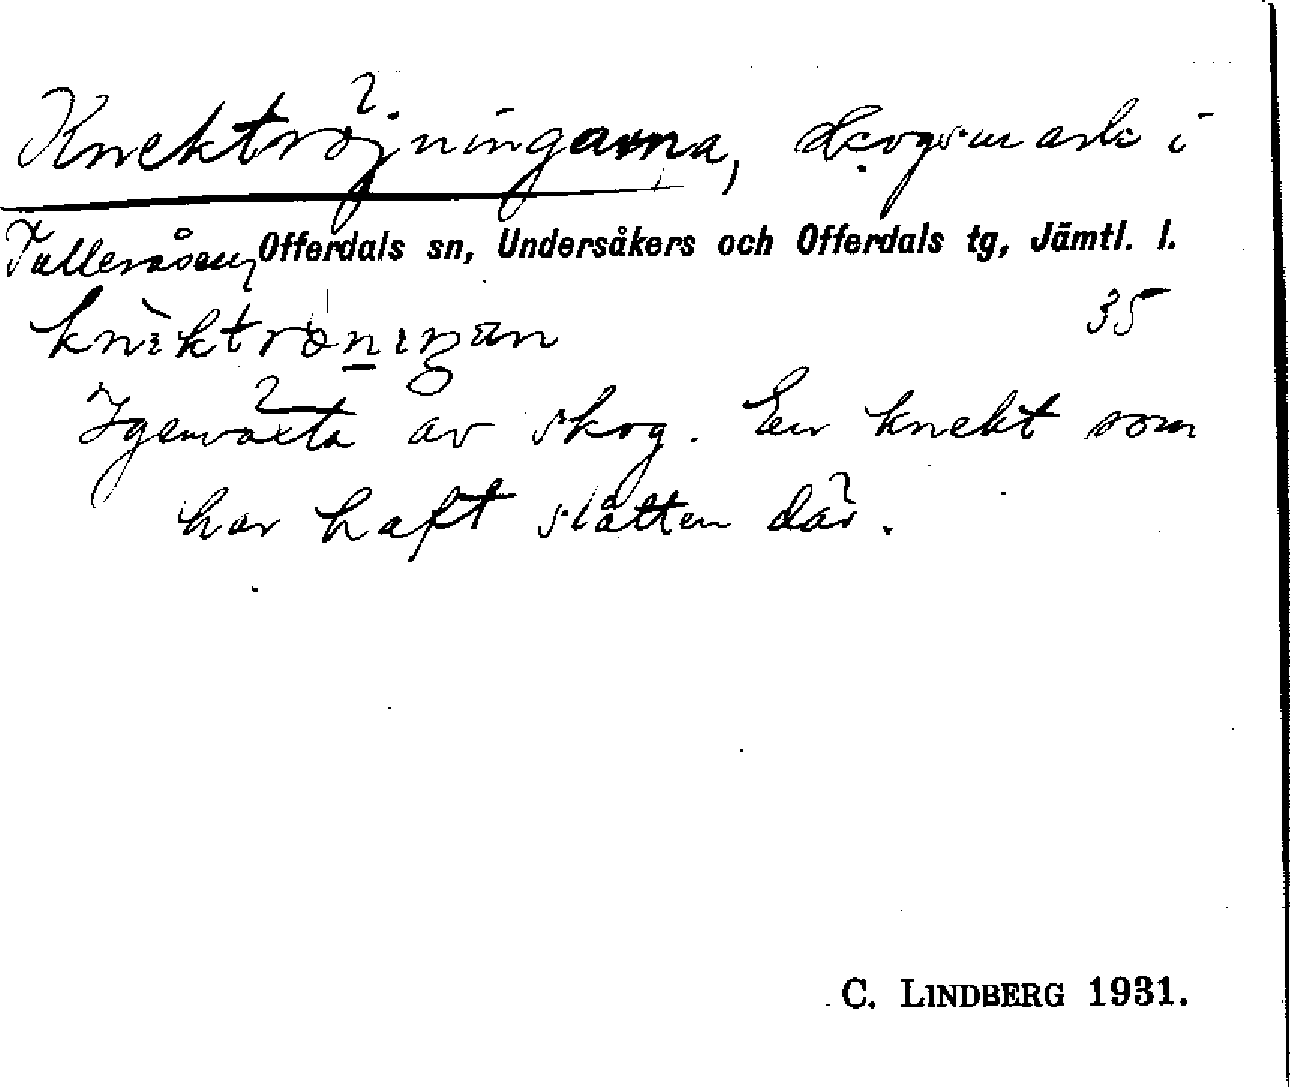 Knektröjningarna, skogsmark i
Tulleråsen, Offerdals sn, Undersåkers och Offerdals tg, Jämtl. l.
35
Igenväxta av skog. En knekt som
har haft slåtten där.
C. LINDBERG 1931.